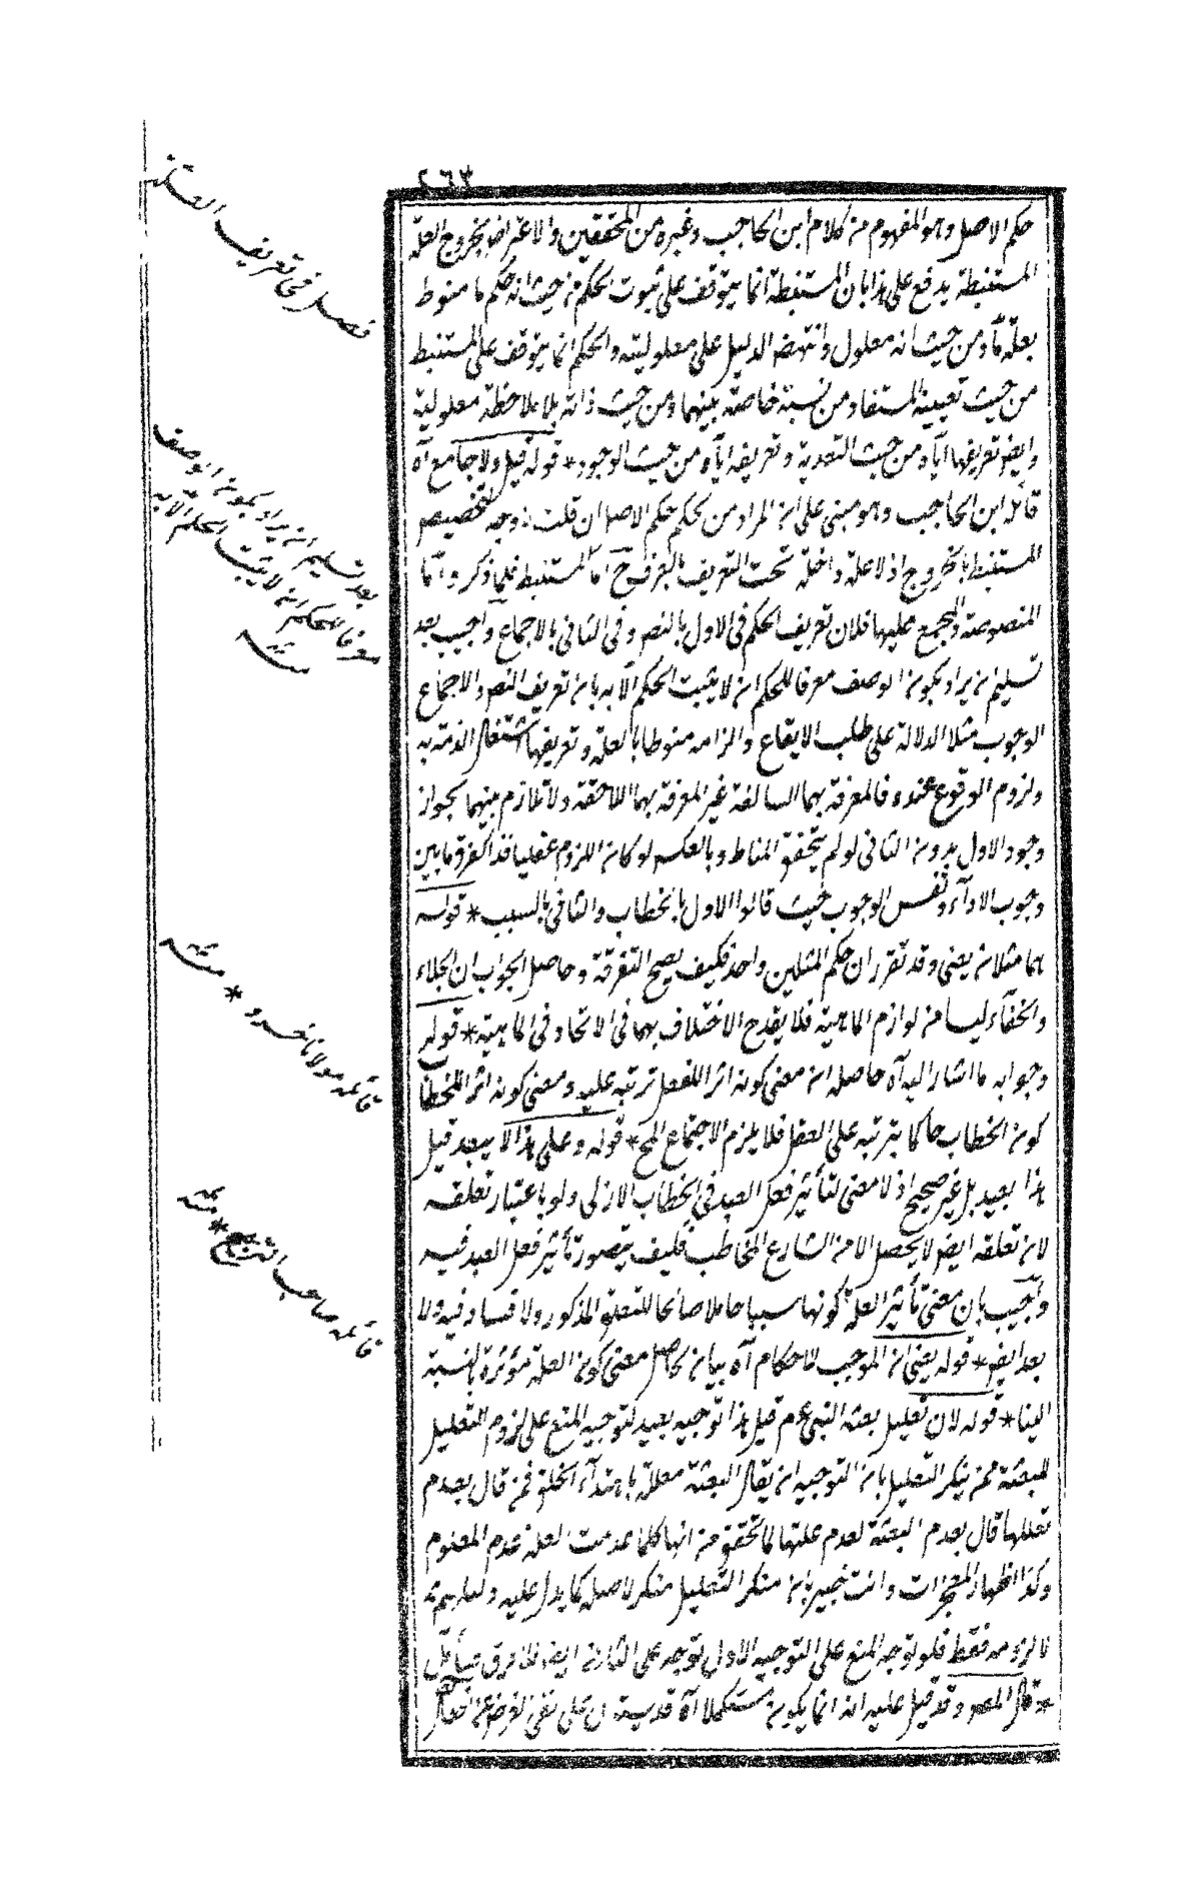 ٢٦٣
حكم الاصل وهو المفهوم من كلام ابن الحاجب وغيره من المحققين والاعتراض بخروج العلة
المستنبطة يدفع على هذا بان المستنبطة انما يتوقف على ثبوت الحكم من حيث انه حكم ما منوط
بعلة ما ومن حيث انه معلول وانتهض الدليل على معلوليته والحكم انما يتوقف على المستنبط
من حيث تعيينه المستفاد من نسبة خاصة بينهما ومن حيث ذاته بلا ملاحظة معلولية
وايض تعريفها اياه من حيث التعدية وتعريفه اياه من حيث الوجود * قوله قيل ولا جامع آه
قائله ابن الحاجب وهو مبنى على ان المراد من الحكم حكم الاصل ان قلت وجه تخصيص
المستنبط بالخروج اذ لا علة داخلة تحت التعريف بالمعرف ح اما المستنبط فلما ذكر واما
المنصوصة والمجمع عليها فلان تعريف الحكم فى الاول بالنص وفى الثانى بالاجماع واجيب بعد
تسليم ان يراد بكون الوصف معرفا للحكم ان لا يثبت الحكم الا به بان تعريف النص والاجماع
الوجوب مثلا الدلالة على طلب الايقاع والزامه منوطا بالعلة وتعريفها اشتغال الذمة به
ولزوم الوقوع عنده فالمعرفة بهما السالفة غير المعرفة بهما اللاحقة ولا تلازم بينهما لجواز
وجود الاول بدون الثانى لو لم يتحقق المناط وبالعكس لو كان اللزوم عقليا فذا كفرق ما بين
وجوب الاداء ونفس الوجوب حيث قالوا الاول بالخطاب والثانى بالسبب * قوله
هما مثلان يعنى وقد تقرر ان حكم المثلين واحد فكيف يصح التفرقة وحاصل الجواب ان الجلاء
والخفاء ليسا من لوازم الماهية فلا يقدح الاختلاف بهما فى الاتحاد فى الماهية * قوله
وجوابه ما اشار اليه آه حاصله ان معنى كونه اثر اللفعل ترتبه عليه ومعنى كونه اثر اللخطاب
كون الخطاب حاكما بترتبه على العقل فلا يلزم الاجتماع المح * قوله وعلى هذا لا يبعد قيل
هذا بعيد بل غير صحيح اذ لا معنى لتأثير فعل العبد فى الخطاب الازلى ولو باعتبار تعلقه
لان تعلقه ايض لا يحصل الا من الشارع المخاطب فكيف يتصور تأثير فعل العبد فيه
واجيب بان معنى تأثير العلة كونها سببا حاملا صالحا للتعلق المذكور ولا فساد فيه ولا
بعد ايض * قوله يعنى ان الموجب للاحكام آه بيان لحاصل معنى كون العلة مؤثرة بالنسبة
الينا * قوله لان تعليل بعثة النبى عم قيل هذا توجيه بعيد لتوجيه المنع على لزوم التعليل
للبعثة ممن ينكر التعليل بان التوجيه ان يقال البعثة معللة باهتداء الخلق فمن قال بعدم
تعللها قال بعدم البعثة لعدم علتها لما تحقق من انها كلما عدمت العلة عدم المعلوم
وكذا اظهار المعجزات وانت خبير بان منكر التعليل منكر لاصله كما يدل عليه
لا لزومه فقط فلو توجه المنع على التوجيه الاول توجه على الثانى ايض فلا فرق فتأمل
* قال المص وقد قيل عليه انه انما يكون مستكملا آه قد يستدل على نفى الغرض عن افعال
فصل فى تعريف العلة
بعد تسليم ان يراد بكون الوصف
معرفا للحكم ان لا يثبت الحكم الا به
منه
قائله مولانا خسرو * منه
قائله صاحب الترجيح * منه